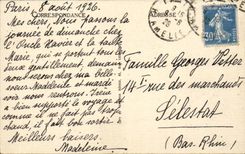 Paris, 8 août 1936.
CORRESPONDANCE
Mes chers, Nous passons la
journée de dimanche chez
l'Oncle Xavier et la tante
Marie, qui se portent tous
gentillement, demain
nous irons chez ma belle-
soeur Madeleine et mardi
nous rentrerons. Irène
a bien supporté le voyage et
comme il ne fait pas trop
chaud, il fait bon sortir.
Meilleurs baisers.
Madeleine
Famille Georges Vetter
14 rue des marchands
Sélestat
(Bas-Rhin)